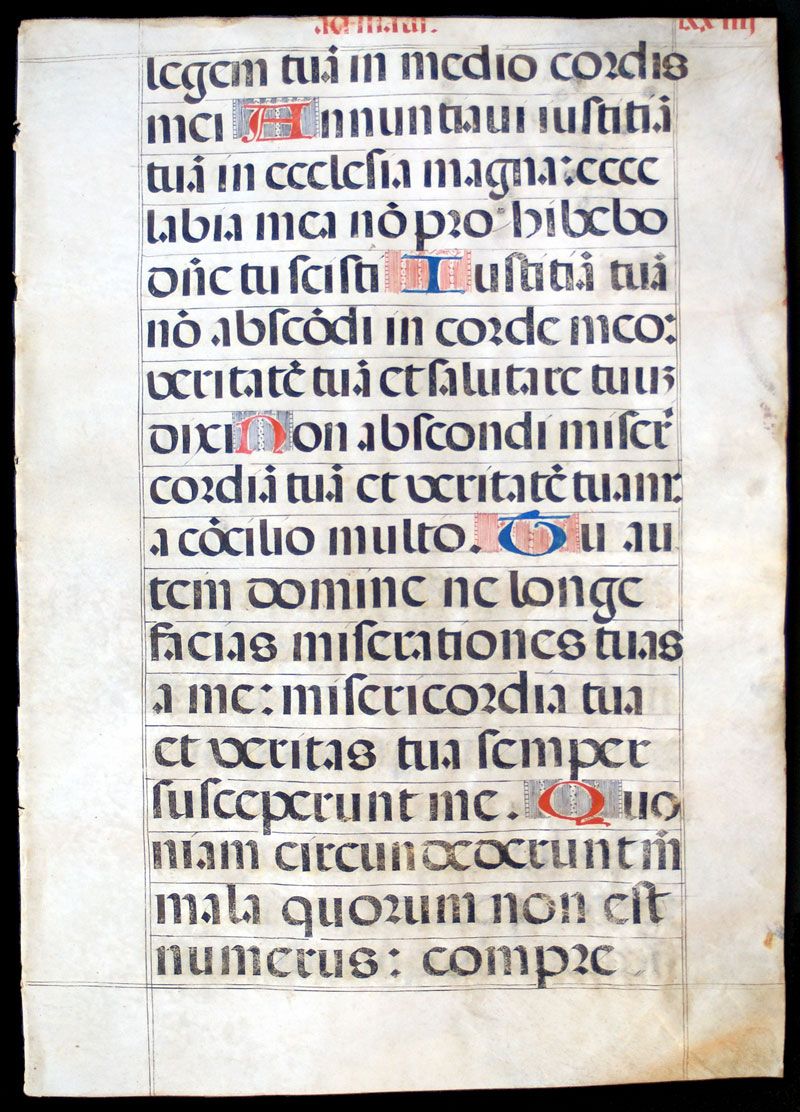 ad matu. lxxiiij
legem tuā in medio cordis
mei Annuntiaui iustitiā
tuā in ecclesia magna: ecce
labia mea nō pro hibebo
dn̄e tu scisti Iustitiā tuā
nō abscōdi in corde meo:
veritatē tuā et salutare tuuʒ
dixi Non abscondi miseri
cordiā tuā et veritatē tuam:
a cōcilio multo. Tu au
tem domine ne longe
facias miserationes tuas
a me: misericordia tua
et veritas tua semper
susceperunt me. Quo
niam circundederunt m̄
mala quorum non est
numerus: compre